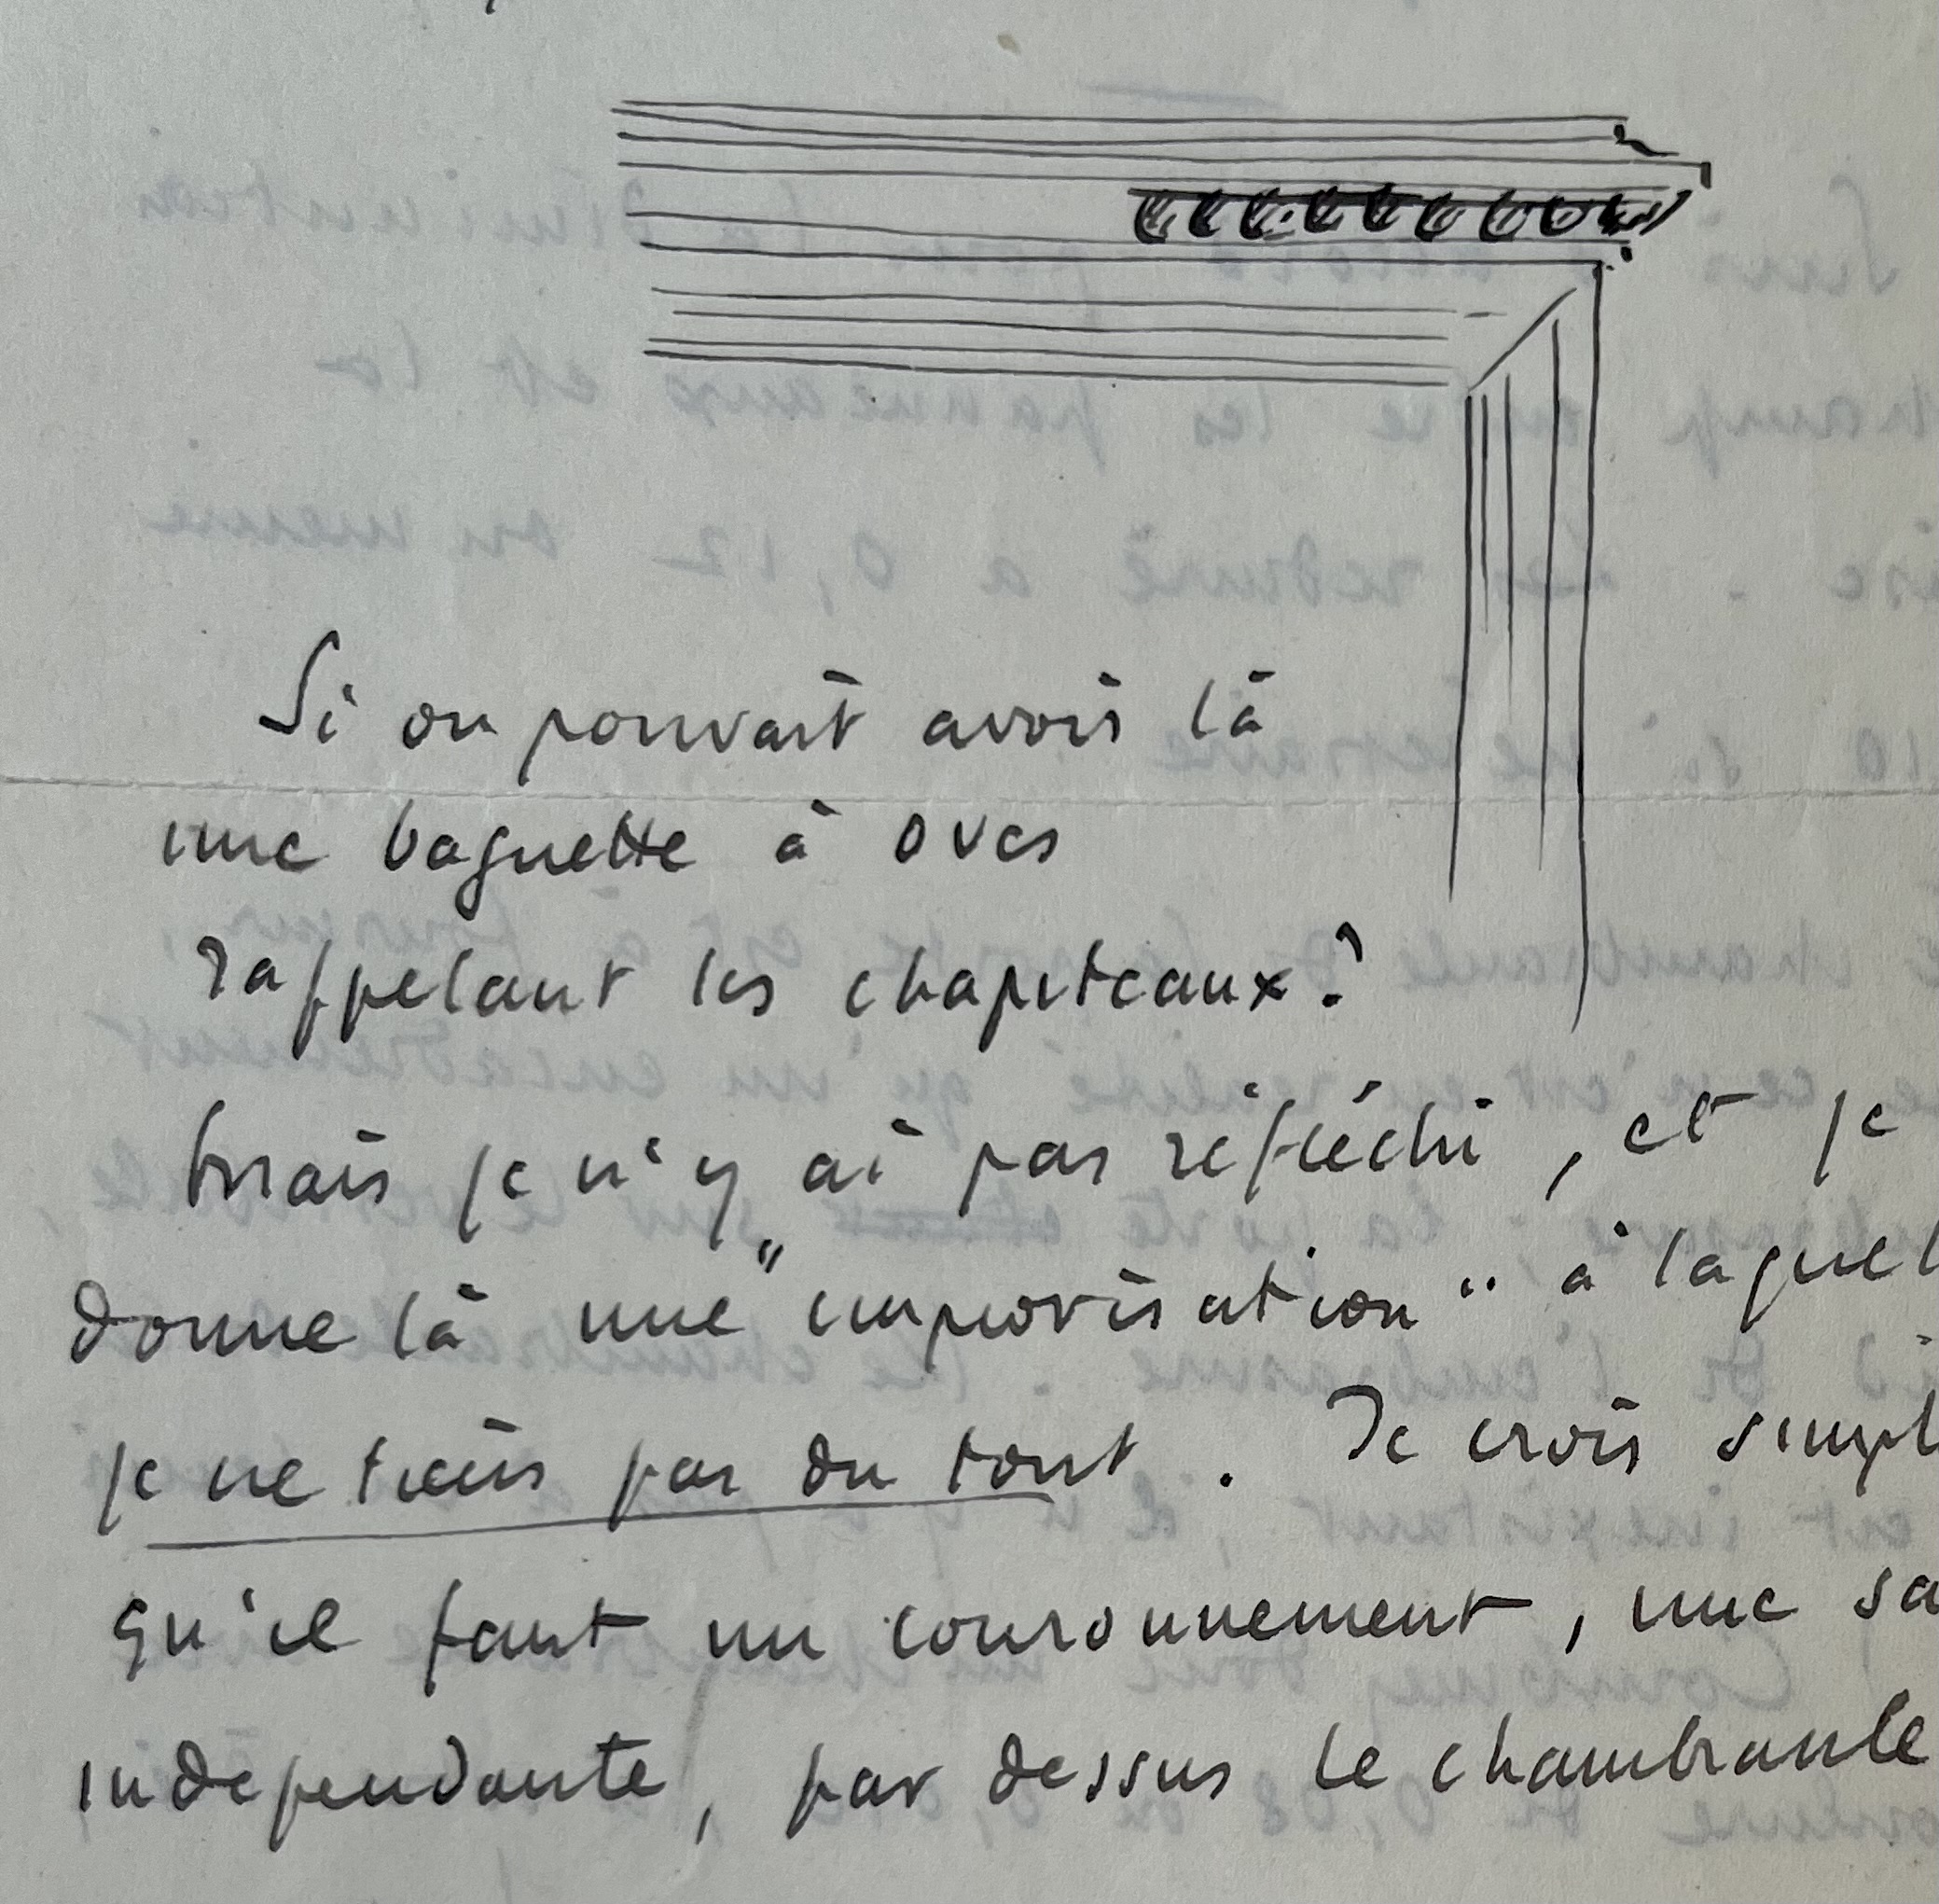 Si on pouvait avoir là
une baguette à oves
rappelant les chapiteaux?
Mais je n'y ai pas réfléchi, et je
donne là une "improvisation" à laquel
je ne tiens pas du tout. Je crois simpl
qu'il faut un couronnement, une sa
indépendante, par dessus le chambranle